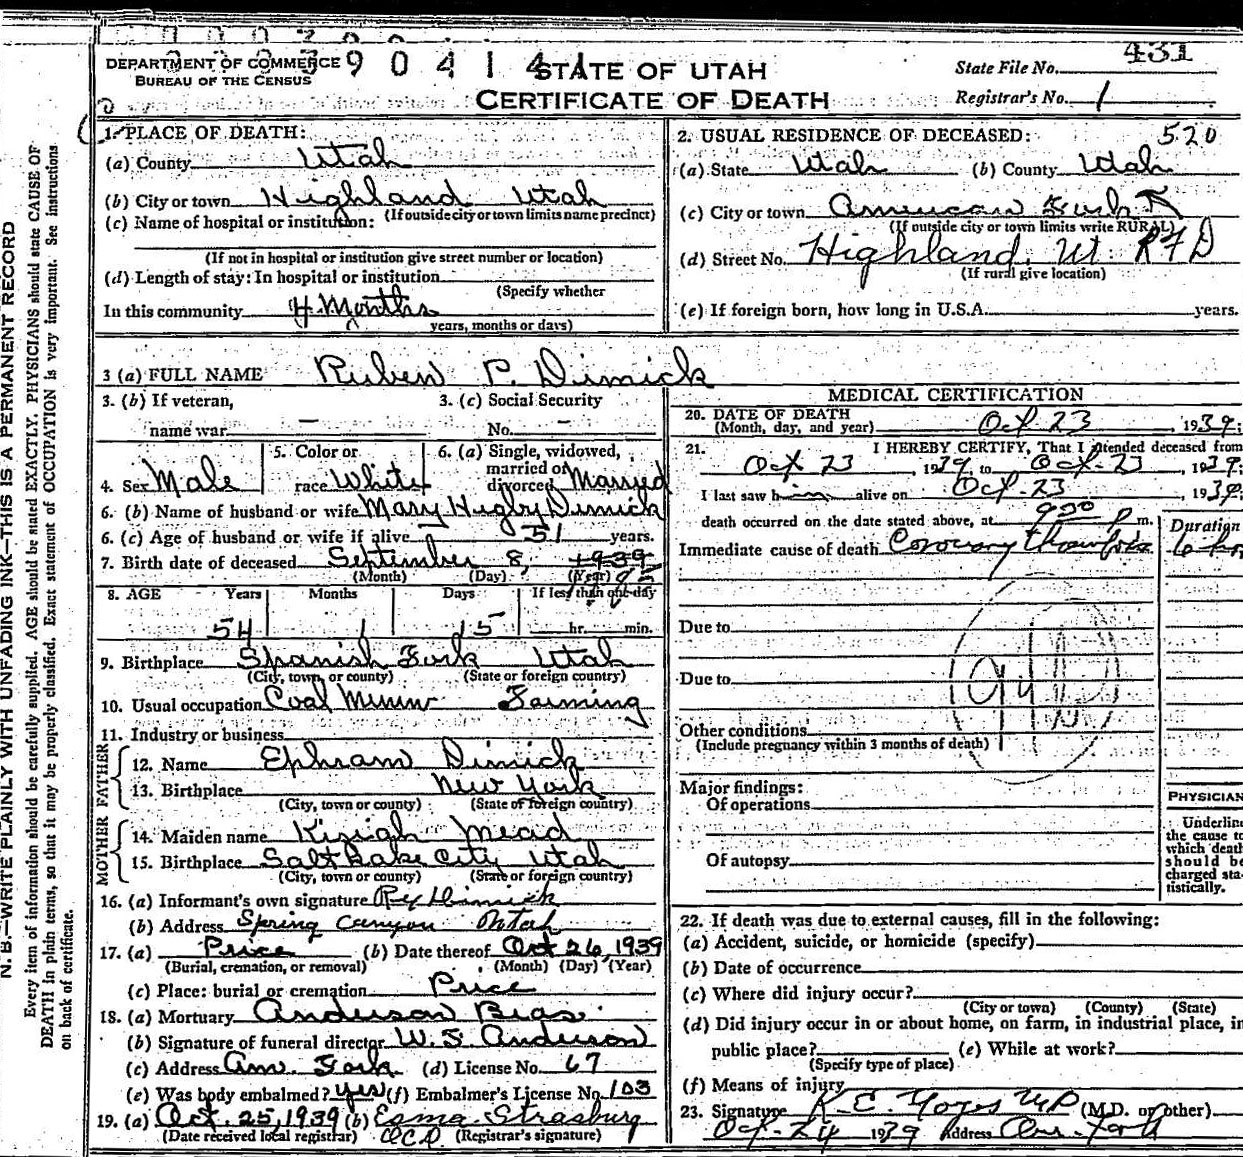 DEPARTMENT OF COMMERCE
BUREAU OF THE CENSUS
390414
STATE OF UTAH
CERTIFICATE OF DEATH
State File No. 431
Registrar's No. 1
N. B.—WRITE PLAINLY WITH UNFADING INK—THIS IS A PERMANENT RECORD
Every item of information should be carefully supplied. AGE should be stated EXACTLY. PHYSICIANS should state CAUSE OF
DEATH in plain terms, so that it may be properly classified. Exact statement of OCCUPATION is very important. See instructions
on back of certificate.
1. PLACE OF DEATH:
(a) County Utah
(b) City or town Highland Utah
(If outside city or town limits name precinct)
(c) Name of hospital or institution:
(If not in hospital or institution give street number or location)
(d) Length of stay: In hospital or institution
(Specify whether
In this community 4 Months
years, months or days)
2. USUAL RESIDENCE OF DECEASED: 520
(a) State Utah (b) County Utah
(c) City or town American Fork
(If outside city or town limits write RURAL)
(d) Street No. Highland, Ut. RFD
(If rural give location)
(e) If foreign born, how long in U.S.A. years.
3 (a) FULL NAME Ruben P. Dimick
3. (b) If veteran, name war —
3. (c) Social Security No. —
4. Sex Male
5. Color or race White
6. (a) Single, widowed, married or divorced Married
6. (b) Name of husband or wife Mary Higby Dimick
6. (c) Age of husband or wife if alive 51 years.
7. Birth date of deceased September 8, 1939
(Month) (Day) (Year)
8. AGE Years Months Days If less than one day
54 1 15 hr. min.
9. Birthplace Spanish Fork Utah
(City, town, or county) (State or foreign country)
10. Usual occupation Coal Miner Farming
11. Industry or business
FATHER
12. Name Ephram Dimick
13. Birthplace New York
(City, town or county) (State of foreign country)
MOTHER
14. Maiden name Kizigh Mead
15. Birthplace Salt Lake City Utah
(City, town or county) (State or foreign country)
16. (a) Informant's own signature Dimick
(b) Address Spring Canyon Utah
17. (a) Price (b) Date thereof Oct 26, 1939
(Burial, cremation, or removal) (Month) (Day) (Year)
(c) Place: burial or cremation Price
18. (a) Mortuary Anderson
(b) Signature of funeral director W. S. Anderson
(c) Address Am. Fork (d) License No. 67
(e) Was body embalmed? yes (f) Embalmer's License No. 103
19. (a) Oct. 25, 1939 (b) Esma Strasburg
(Date received local registrar) (Registrar's signature)
MEDICAL CERTIFICATION
20. DATE OF DEATH
(Month, day, and year) Oct 23, 1939;
21. I HEREBY CERTIFY, That I attended deceased from
Oct 23, 1939 to Oct-23, 1939;
I last saw him alive on Oct-23, 1939;
death occurred on the date stated above, at 900 P m.
Duration
Immediate cause of death Coronary thrombosis 6 hrs
Due to
Due to
Other conditions
(Include pregnancy within 3 months of death)
Major findings:
Of operations
Of autopsy
PHYSICIAN
Underline
the cause to
which death
should be
charged sta-
tistically.
22. If death was due to external causes, fill in the following:
(a) Accident, suicide, or homicide (specify)
(b) Date of occurrence
(c) Where did injury occur?
(City or town) (County) (State)
(d) Did injury occur in or about home, on farm, in industrial place, in
public place? (e) While at work?
(Specify type of place)
(f) Means of injury
23. Signature K. E. Noyes MD (M.D. or other)
Oct-24 1939 Address Am. Fork